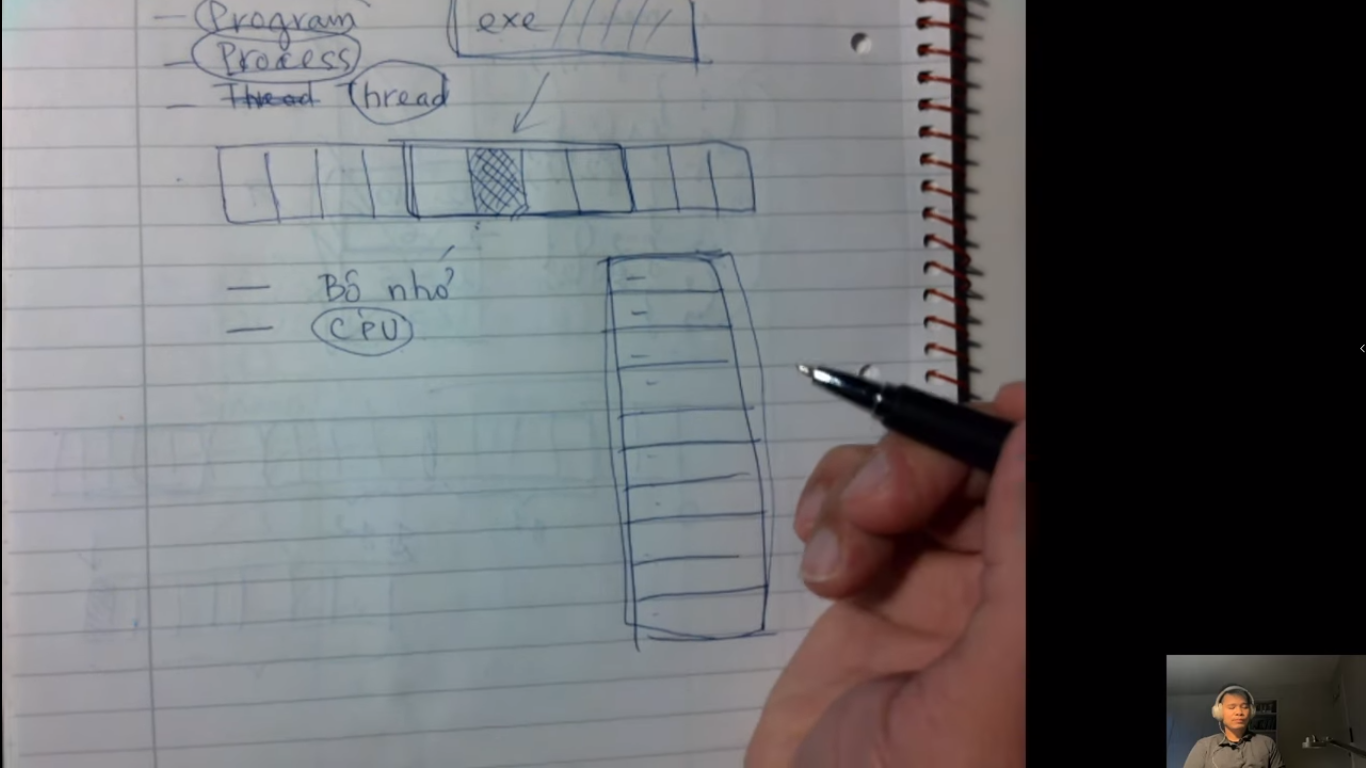 — Program
exe
— Process
— Thread Thread
— Bộ nhớ
— CPU